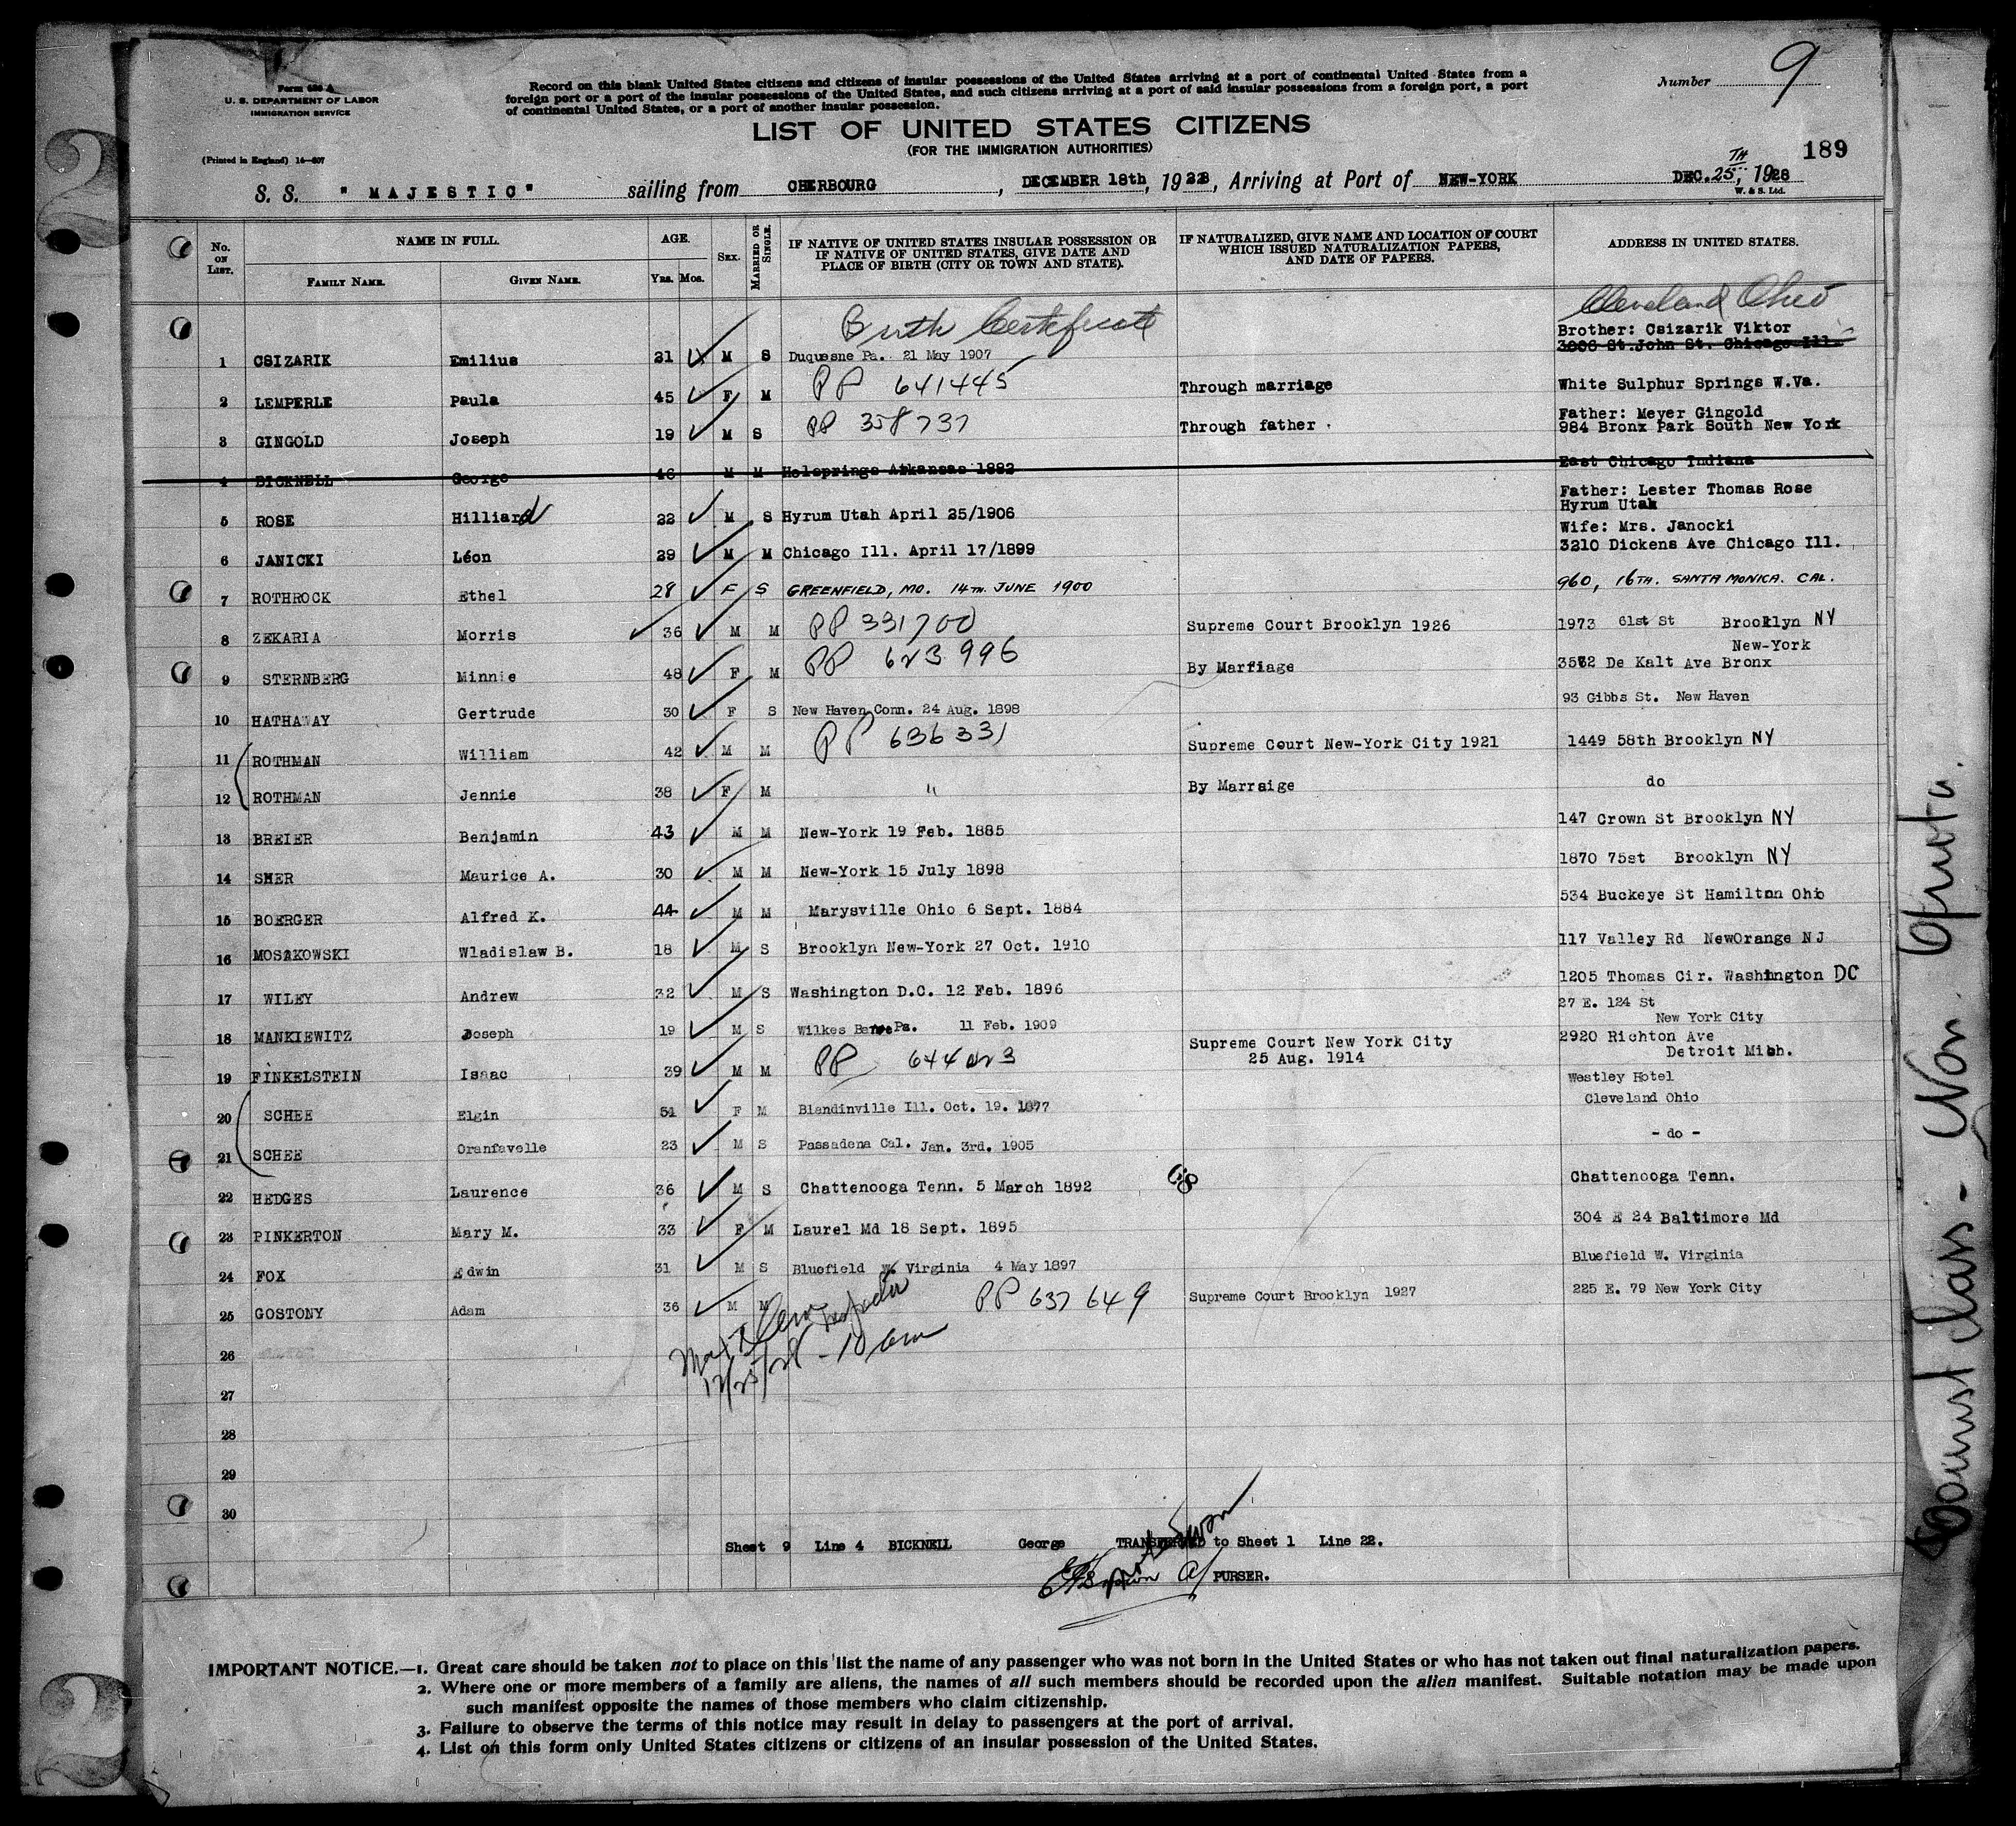 Form 686 A
U. S. DEPARTMENT OF LABOR
IMMIGRATION SERVICE
(Printed in England) 14—807
Record on this blank United States citizens and citizens of insular possessions of the United States arriving at a port of continental United States from a
foreign port or a port of the insular possessions of the United States, and such citizens arriving at a port of said insular possessions from a foreign port, a port
of continental United States, or a port of another insular possession.
Number 9
LIST OF UNITED STATES CITIZENS
(FOR THE IMMIGRATION AUTHORITIES)
189
S. S. "MAJESTIC" sailing from CHERBOURG, DECEMBER 18th, 1928, Arriving at Port of NEW-YORK DEC. 25TH, 1928
W. & S. Ltd.
No. ON LIST. NAME IN FULL. FAMILY NAME. GIVEN NAME. AGE. YRS. MOS. SEX. MARRIED OR SINGLE. IF NATIVE OF UNITED STATES INSULAR POSSESSION OR IF NATIVE OF UNITED STATES, GIVE DATE AND PLACE OF BIRTH (CITY OR TOWN AND STATE). IF NATURALIZED, GIVE NAME AND LOCATION OF COURT WHICH ISSUED NATURALIZATION PAPERS, AND DATE OF PAPERS. ADDRESS IN UNITED STATES.
Birth Certificate Cleveland Ohio
1 CSIZARIK Emilius 21 M S Duquesne Pa. 21 May 1907 Brother: Csizarik Viktor
3806 St.John St. Chicago Ill.
2 LEMPERLE Paula 45 F M PP 641445 Through marriage White Sulphur Springs W.Va.
3 GINGOLD Joseph 19 M S PP 358737 Through father. Father: Meyer Gingold
984 Bronx Park South New York
4 BICKNELL George 46 M M Holsprings Arkansas 1882 East Chicago Indiana
5 ROSE Hilliard 22 M S Hyrum Utah April 25/1906 Father: Lester Thomas Rose
Hyrum Utah
6 JANICKI Léon 29 M M Chicago Ill. April 17/1899 Wife: Mrs. Janocki
3210 Dickens Ave Chicago Ill.
7 ROTHROCK Ethel 28 F S GREENFIELD, MO. 14TH. JUNE 1900 960, 16TH. SANTA MONICA. CAL.
8 ZEKARIA Morris 36 M M PP 331700 Supreme Court Brooklyn 1926 1973 61st St Brooklyn NY
9 STERNBERG Minnie 48 F M PP 623996 By Marfiage New-York
3572 De Kalt Ave Bronx
10 HATHAWAY Gertrude 30 F S New Haven Conn. 24 Aug. 1898 93 Gibbs St. New Haven
11 ROTHMAN William 42 M M PP 636331 Supreme Court New-York City 1921 1449 58th Brooklyn NY
12 ROTHMAN Jennie 38 F M " By Marraige do
13 BREIER Benjamin 43 M M New-York 19 Feb. 1885 147 Crown St Brooklyn NY
14 SHER Maurice A. 30 M M New-York 15 July 1898 1870 75st Brooklyn NY
15 BOERGER Alfred K. 44 M M Marysville Ohio 6 Sept. 1884 534 Buckeye St Hamilton Ohio
16 MOSAKOWSKI Wladislaw B. 18 M S Brooklyn New-York 27 Oct. 1910 117 Valley Rd NewOrange N J
17 WILEY Andrew 32 M S Washington D.C. 12 Feb. 1896 1205 Thomas Cir. Washington DC
18 MANKIEWITZ Joseph 19 M S Wilkes Barre Pa. 11 Feb. 1909 27 E. 124 St
New York City
19 FINKELSTEIN Isaac 39 M M PP 644023 Supreme Court New York City
25 Aug. 1914 2920 Richton Ave
Detroit Mich.
20 SCHEE Elgin 51 F M Blandinville Ill. Oct. 19. 1877 Westley Hotel
Cleveland Ohio
21 SCHEE Oranfavelle 23 M S Passadena Cal. Jan. 3rd. 1905 - do -
22 HEDGES Laurence 36 M S Chattenooga Tenn. 5 March 1892 Chattenooga Tenn.
23 PINKERTON Mary M. 33 F M Laurel Md 18 Sept. 1895 304 E 24 Baltimore Md
24 FOX Edwin 31 M S Bluefield W. Virginia 4 May 1897 Bluefield W. Virginia
25 GOSTONY Adam 36 M M PP 637649 Supreme Court Brooklyn 1927 225 E. 79 New York City
26
12/25/28 - 10 am
27
28
29
30
Sheet 9 Line 4 BICKNELL George TRANSFERRED to Sheet 1 Line 22.
PURSER.
IMPORTANT NOTICE.—1. Great care should be taken not to place on this list the name of any passenger who was not born in the United States or who has not taken out final naturalization papers.
2. Where one or more members of a family are aliens, the names of all such members should be recorded upon the alien manifest. Suitable notation may be made upon
such manifest opposite the names of those members who claim citizenship.
3. Failure to observe the terms of this notice may result in delay to passengers at the port of arrival.
4. List on this form only United States citizens or citizens of an insular possession of the United States.
2
2
Tourist Class - Non Quota.